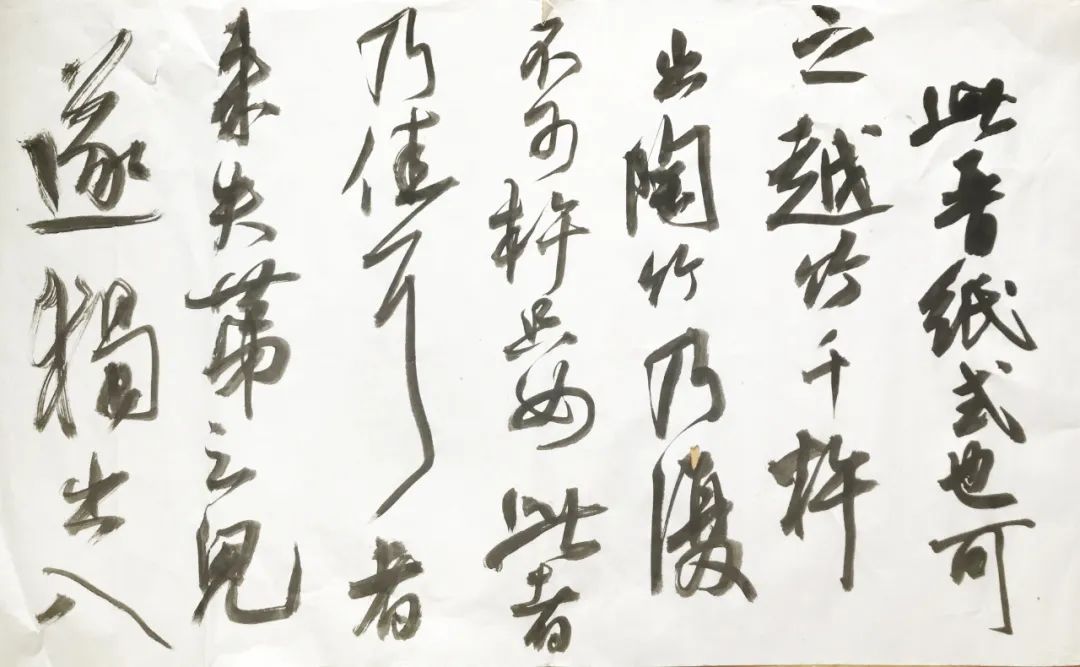 此晋紙式也可
之越竹千杵
出陶竹乃復
不可杵只如此者
乃佳耳者
来失苐三兒
遂獨出入